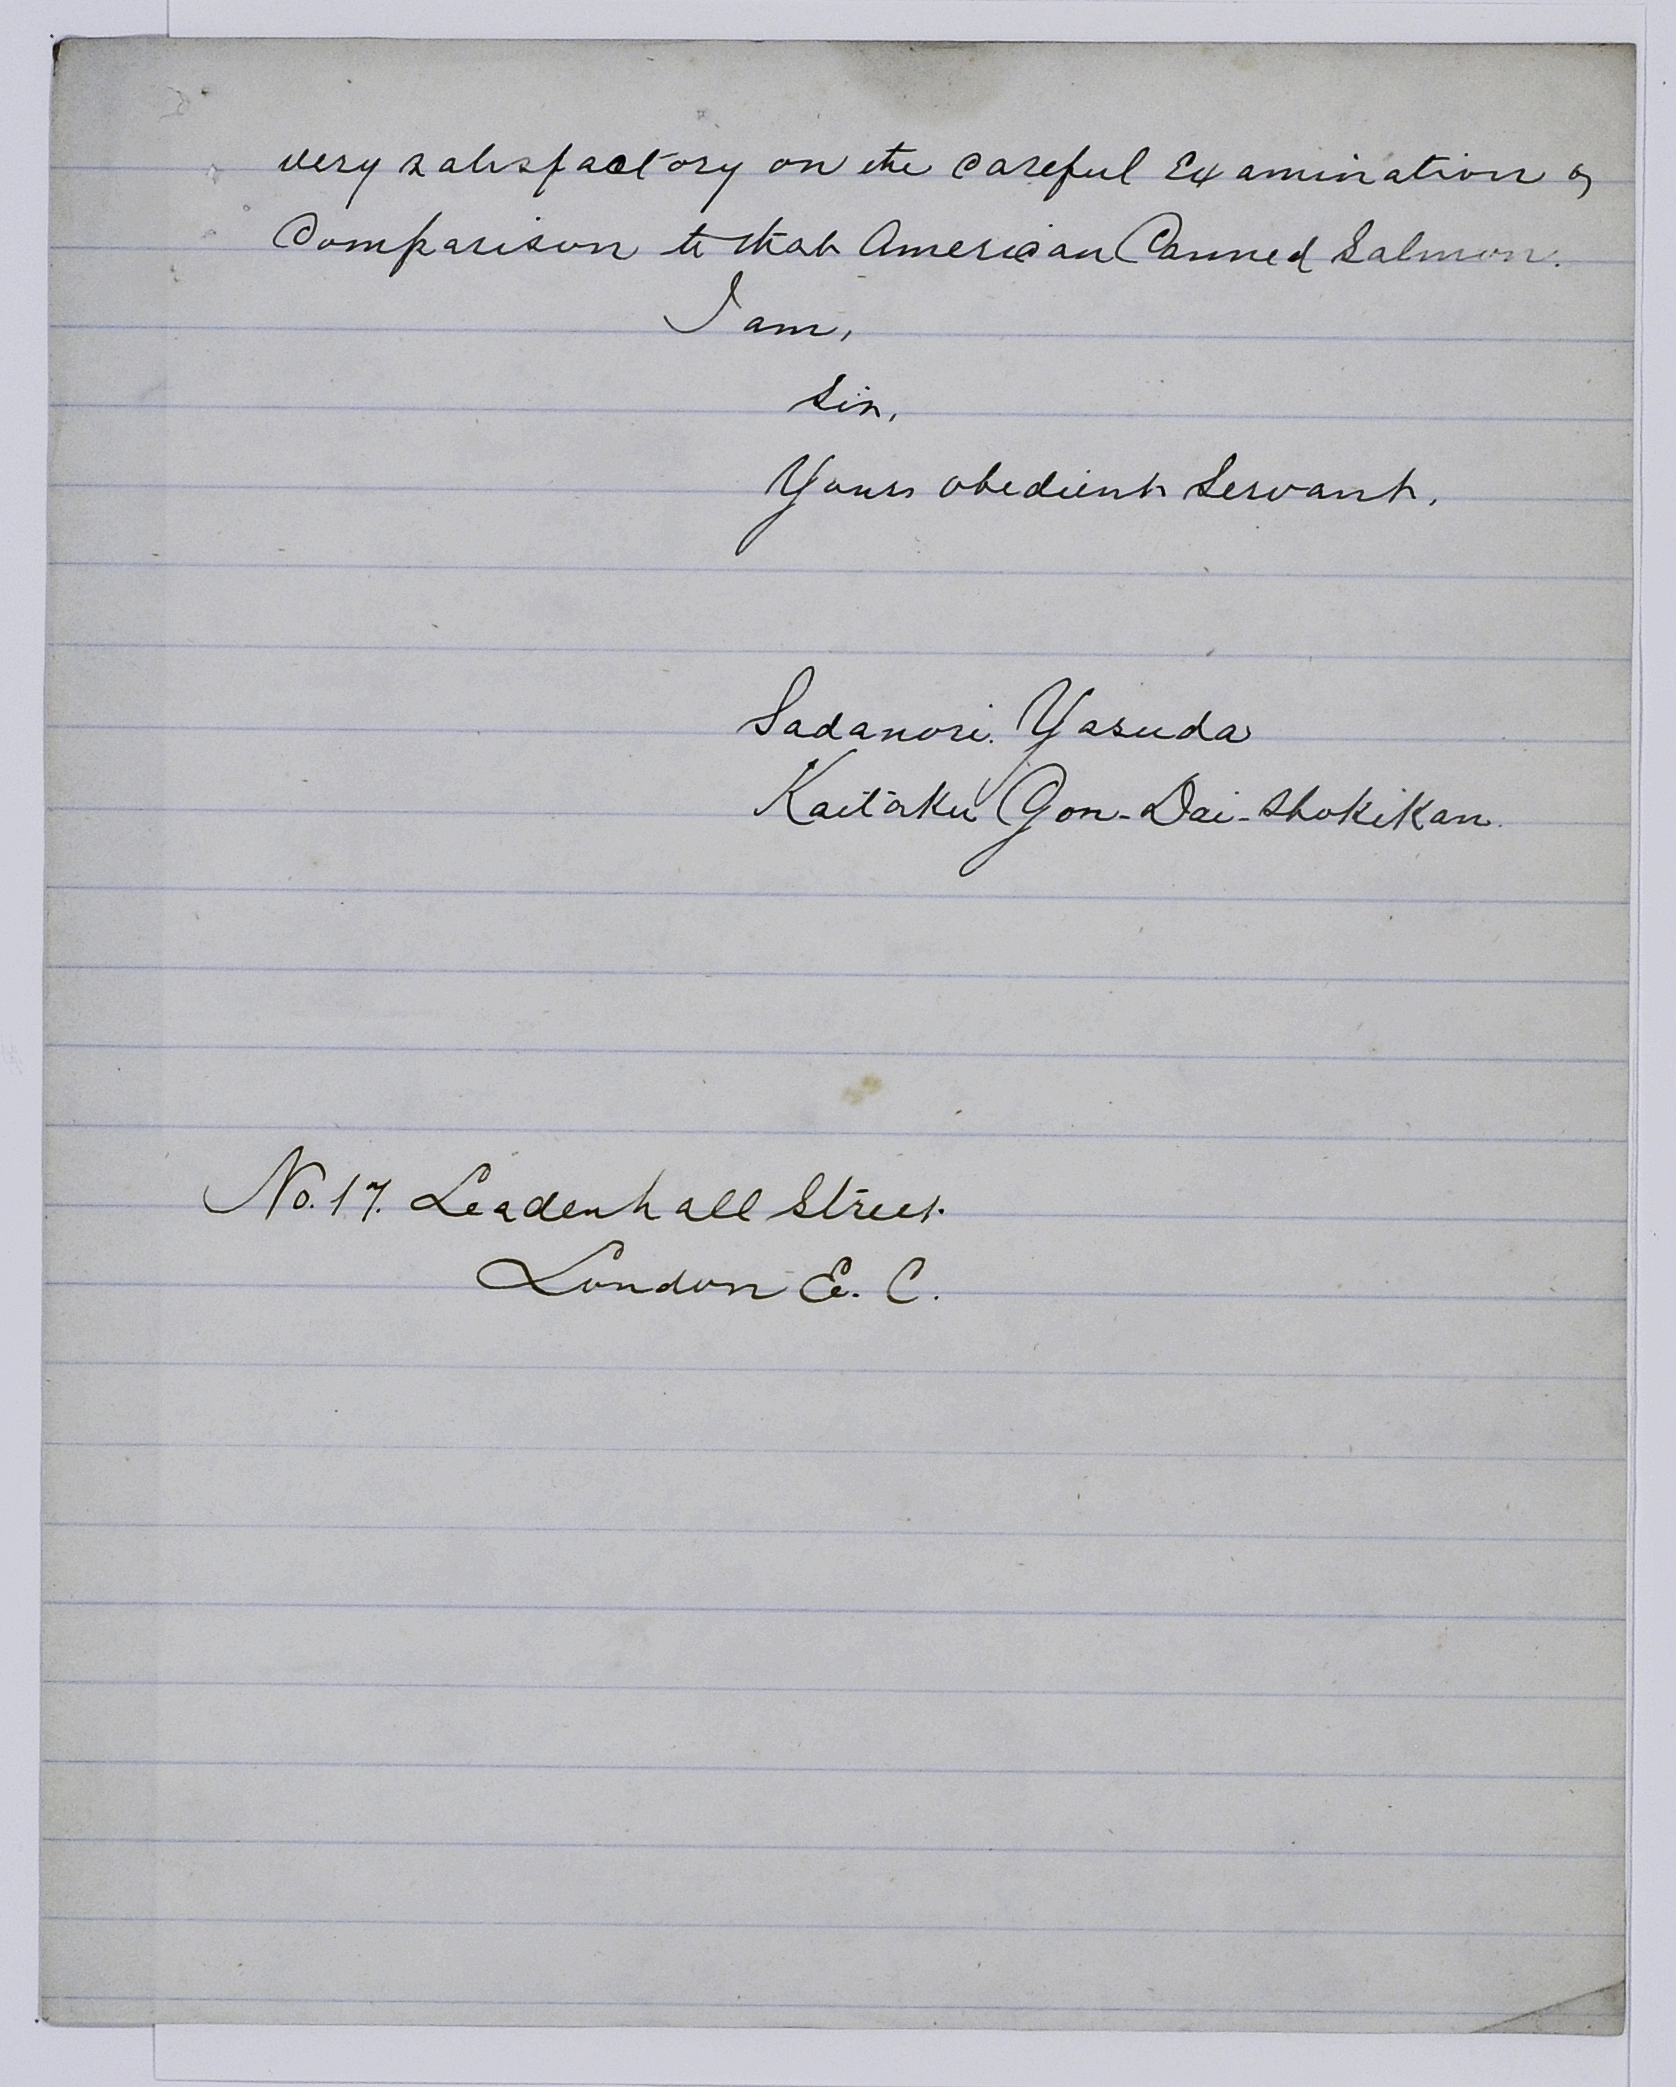 very satisfactory on the careful Examination &
Comparison to that American Canned Salmon.
I am,
Sir,
Yours obedient Servant.
Sadanori. Yasuda
Kaitaku Gon-Dai-Shokikan.
No. 17. Leadenhall Street.
London E. C.